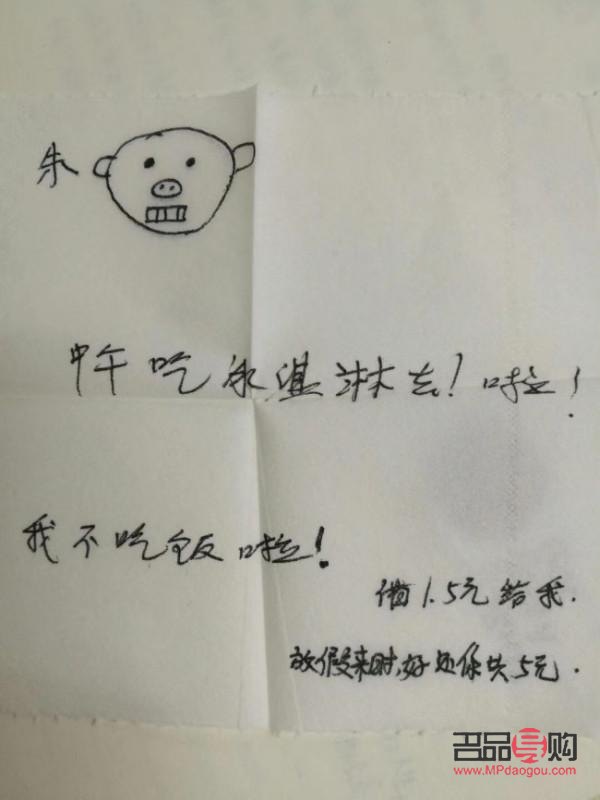 朱
中午吃冰淇淋去!啦!
我不吃饭啦!
借1.5元给我.
放假来时,好还你共5元.
名品导购
www.MPdaogou.com